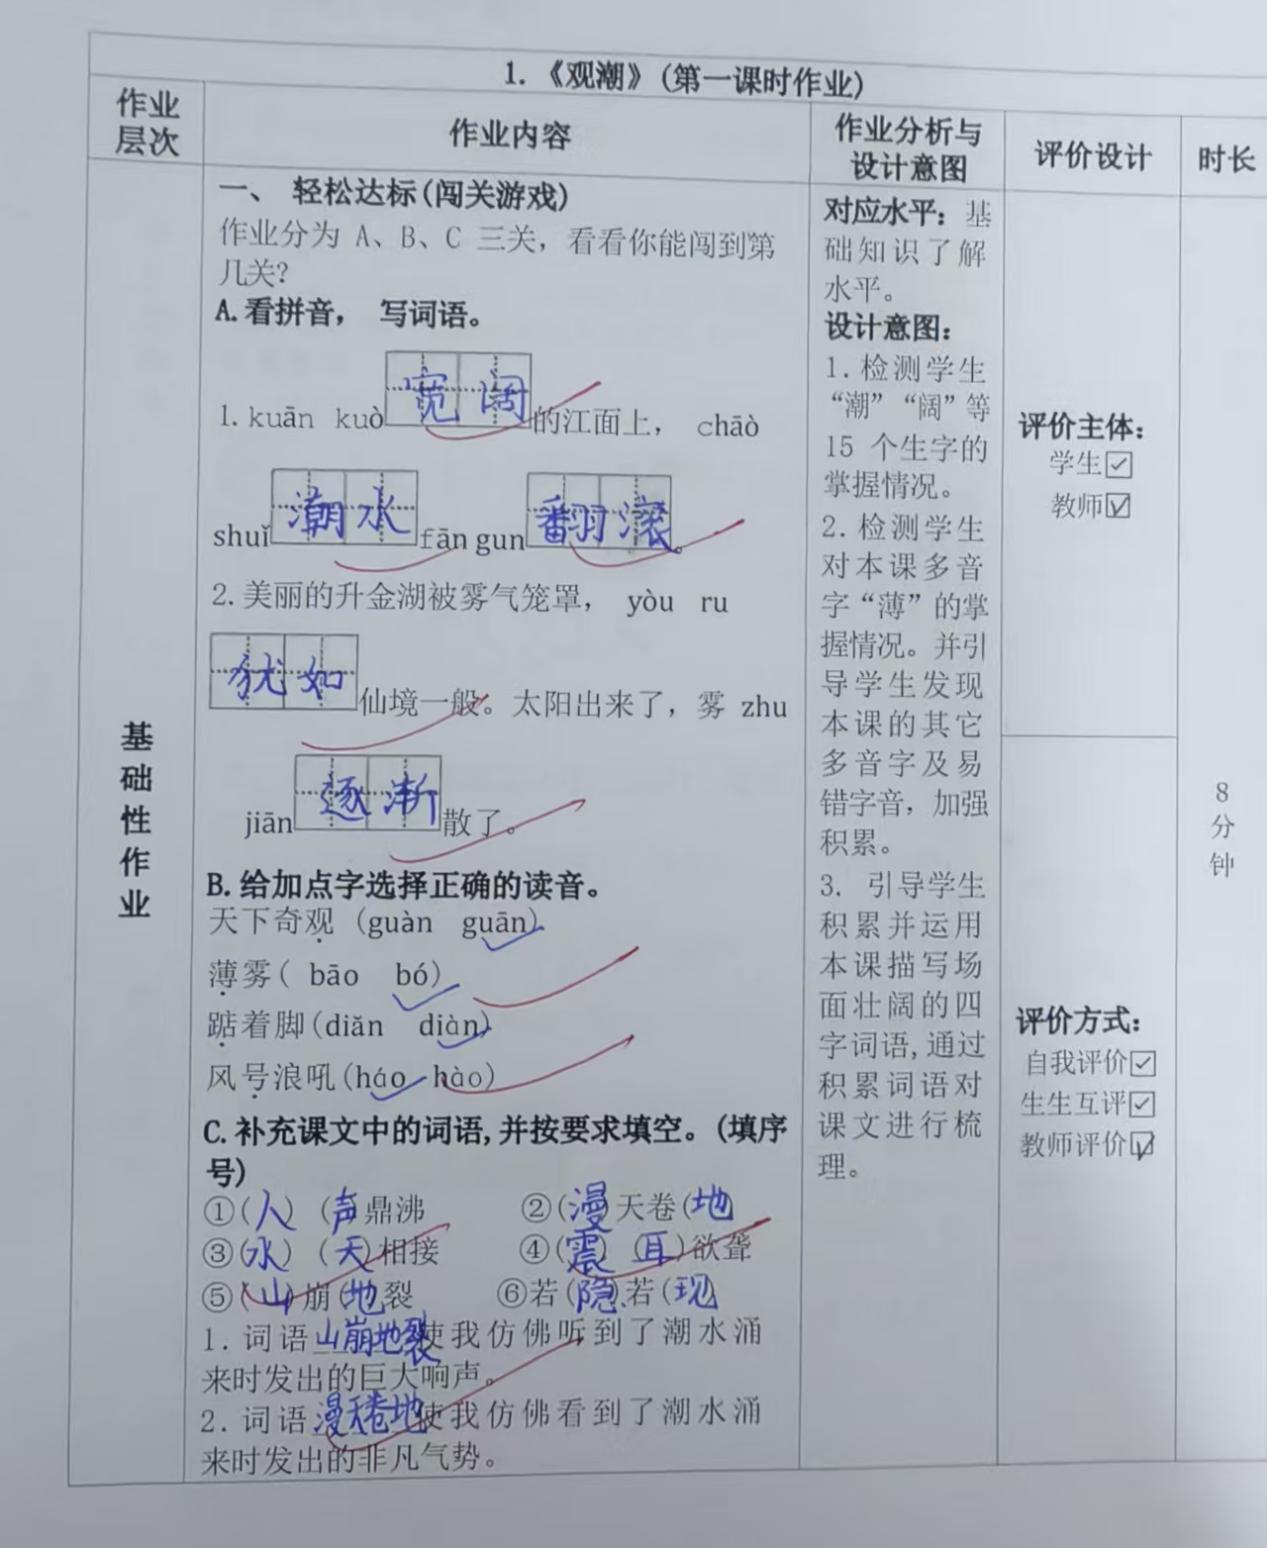 1.《观潮》(第一课时作业)
作业层次
作业内容
作业分析与设计意图
评价设计
时长
基础性作业
一、 轻松达标(闯关游戏)
作业分为 A、B、C 三关，看看你能闯到第
几关?
A.看拼音， 写词语。
1. kuān kuò 宽阔 的江面上， chāo
shuǐ 潮水 fān gun 翻滚。
2.美丽的升金湖被雾气笼罩， yòu ru
犹如 仙境一般。太阳出来了，雾 zhu
jiān 逐渐 散了。
B.给加点字选择正确的读音。
天下奇观 (guàn guān)
薄雾( bāo bó)
踮着脚(diǎn diàn)
风号浪吼(háo hào)
C.补充课文中的词语,并按要求填空。(填序
号)
①(人)(声)鼎沸 ②(漫)天卷(地)
③(水)(天)相接 ④(震)(耳)欲聋
⑤(山)崩(地)裂 ⑥若(隐)若(现)
1.词语山崩地裂使我仿佛听到了潮水涌
来时发出的巨大响声。
2.词语漫天卷地使我仿佛看到了潮水涌
来时发出的非凡气势。
对应水平：基
础知识了解
水平。
设计意图：
1.检测学生
“潮”“阔”等
15 个生字的
掌握情况。
2.检测学生
对本课多音
字“薄”的掌
握情况。并引
导学生发现
本课的其它
多音字及易
错字音，加强
积累。
3. 引导学生
积累并运用
本课描写场
面壮阔的四
字词语,通过
积累词语对
课文进行梳
理。
评价主体：
学生☑
教师☑
评价方式：
自我评价☑
生生互评☑
教师评价☑
8
分
钟